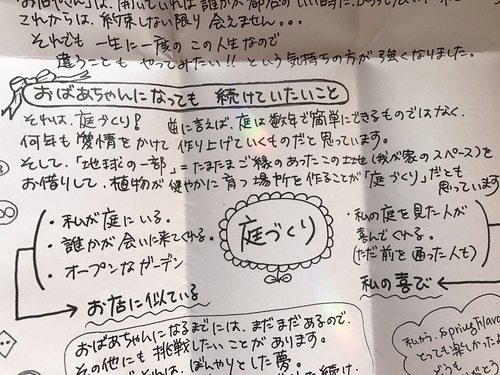 お店やさん」は、開いていれば誰かが都合のいい時に
これからは、約束しない限り会えません...
それでも 一生に一度の この人生なので
違うことも やってみたい!! という気持ちの方が強くなりました。
おばあちゃんになっても 続けていたいこと
それは、庭づくり! 逆に言えば、庭は数年で簡単にできるものではなく、
何年も愛情をかけて 作り上げていくものだと思っています。
そして、「地球の一部」=たまたまご縁のあった この土地(我が家のスペース)を
お借りして、植物が健やかに育つ 場所を作ることが「庭づくり」だとも
思っています
・私が庭にいる。
・誰かが会いに来てくれる。
・オープンなガーデン
お店に似ている
庭づくり
・私の庭を見た人が
喜んでくれる。
(ただ前を通った人も)
私の喜び
おばあちゃんになるまでには、まだまだあるので、
その他にも 挑戦したいことがあります。
それは、ぼんやりとした夢。
続け
私から、Spring Flavo
とっても楽しかったよ
どうも